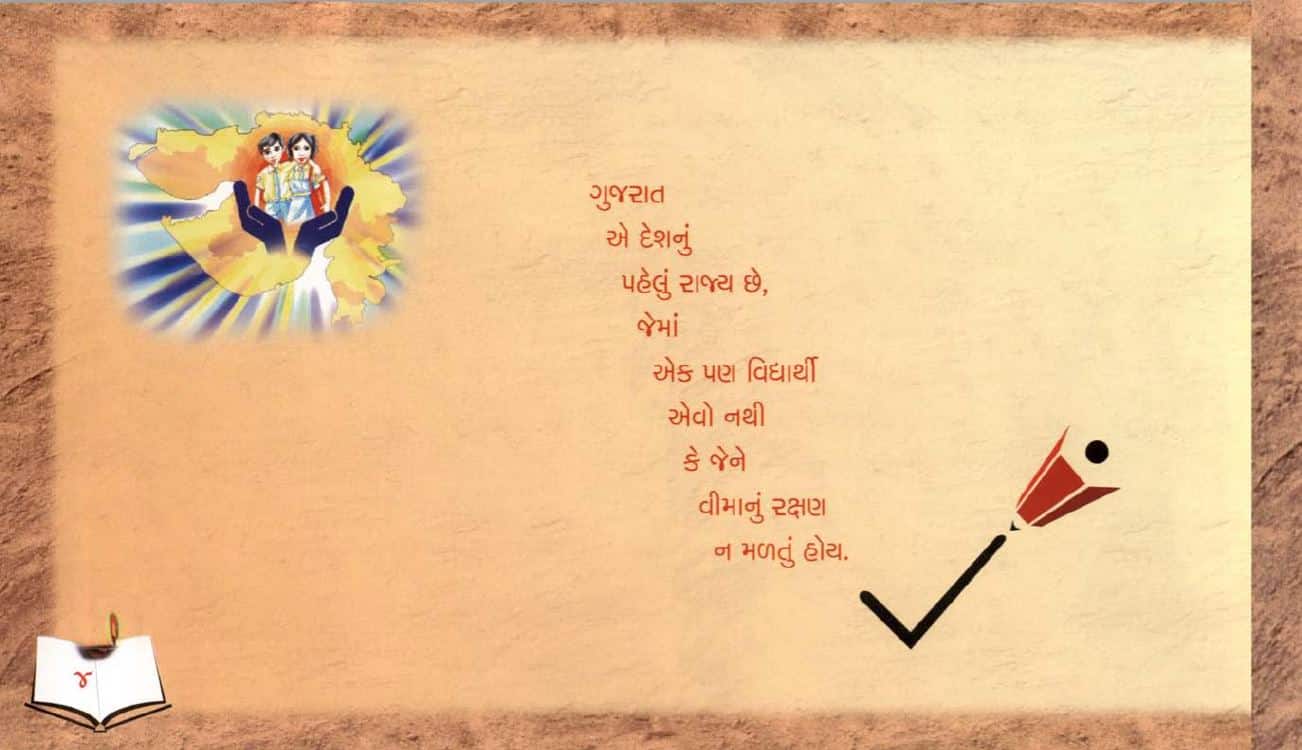 ગુજરાત
એ દેશનું
પહેલું રાજ્ય છે,
જેમાં
એક પણ વિદ્યાર્થી
એવો નથી
કે જેને
વીમાનું રક્ષણ
ન મળતું હોય.
૪